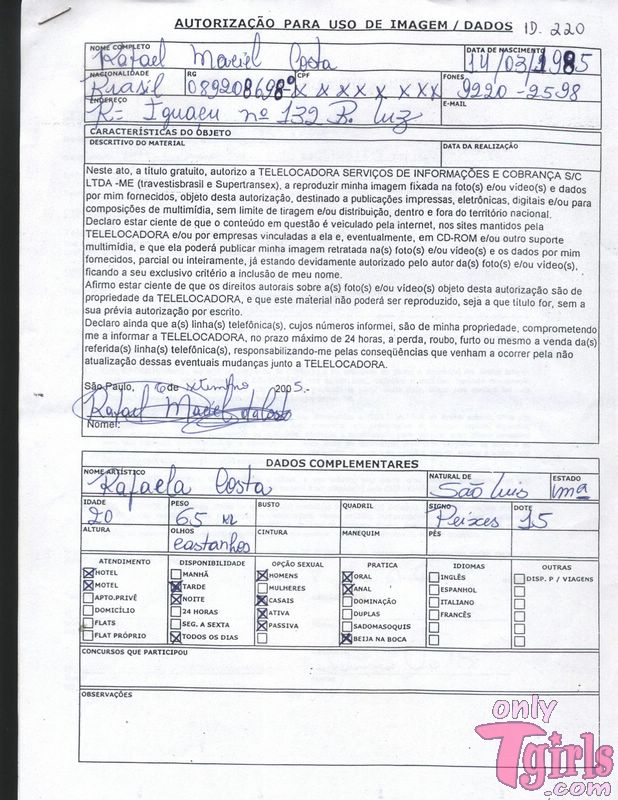 AUTORIZAÇÃO PARA USO DE IMAGEM / DADOS
NOME COMPLETO DATA DE NASCIMENTO
NACIONALIDADE RG CPF FONES
ENDEREÇO E-MAIL
CARACTERÍSTICAS DO OBJETO
DESCRITIVO DO MATERIAL DATA DA REALIZAÇÃO
Neste ato, a título gratuito, autorizo a TELELOCADORA SERVIÇOS DE INFORMAÇÕES E COBRANÇA S/C
LTDA -ME (travestisbrasil e Supertransex), a reproduzir minha imagem fixada na foto(s) e/ou vídeo(s) e dados
por mim fornecidos, objeto desta autorização, destinado a publicações impressas, eletrônicas, digitais e/ou para
composições de multimídia, sem limite de tiragem e/ou distribuição, dentro e fora do território nacional.
Declaro estar ciente de que o conteúdo em questão é veiculado pela internet, nos sites mantidos pela
TELELOCADORA e/ou por empresas vinculadas a ela e, eventualmente, em CD-ROM e/ou outro suporte
multimídia, e que ela poderá publicar minha imagem retratada na(s) foto(s) e/ou vídeo(s) e os dados por mim
fornecidos, parcial ou inteiramente, já estando devidamente autorizado pelo autor da(s) foto(s) e/ou vídeo(s),
ficando a seu exclusivo critério a inclusão de meu nome.
Afirmo estar ciente de que os direitos autorais sobre a(s) foto(s) e/ou vídeo(s) objeto desta autorização são de
propriedade da TELELOCADORA, e que este material não poderá ser reproduzido, seja a que título for, sem a
sua prévia autorização por escrito.
Declaro ainda que a(s) linha(s) telefônica(s), cujos números informei, são de minha propriedade, comprometendo
me a informar a TELELOCADORA, no prazo máximo de 24 horas, a perda, roubo, furto ou mesmo a venda da(s)
referida(s) linha(s) telefônica(s), responsabilizando-me pelas conseqüências que venham a ocorrer pela não
atualização dessas eventuais mudanças junto a TELELOCADORA.
São Paulo, de 200 .-
Nome:
DADOS COMPLEMENTARES
NOME ARTÍSTICO NATURAL DE ESTADO
IDADE PESO BUSTO QUADRIL SIGNO DOTE
ALTURA OLHOS CINTURA MANEQUIM PÉS
ATENDIMENTO DISPONIBILIDADE OPÇÃO SEXUAL PRATICA IDIOMAS OUTRAS
HOTEL MANHÃ HOMENS ORAL INGLÊS DISP. P / VIAGENS
MOTEL TARDE MULHERES ANAL ESPANHOL
APTO.PRIVÊ NOITE CASAIS DOMINAÇÃO ITALIANO
DOMICÍLIO 24 HORAS ATIVA DUPLAS FRANCÊS
FLATS SEG. A SEXTA PASSIVA SADOMASOQUIS
FLAT PRÓPRIO TODOS OS DIAS BEIJA NA BOCA
CONCURSOS QUE PARTICIPOU
OBSERVAÇÕES
only
Tgirls
.com